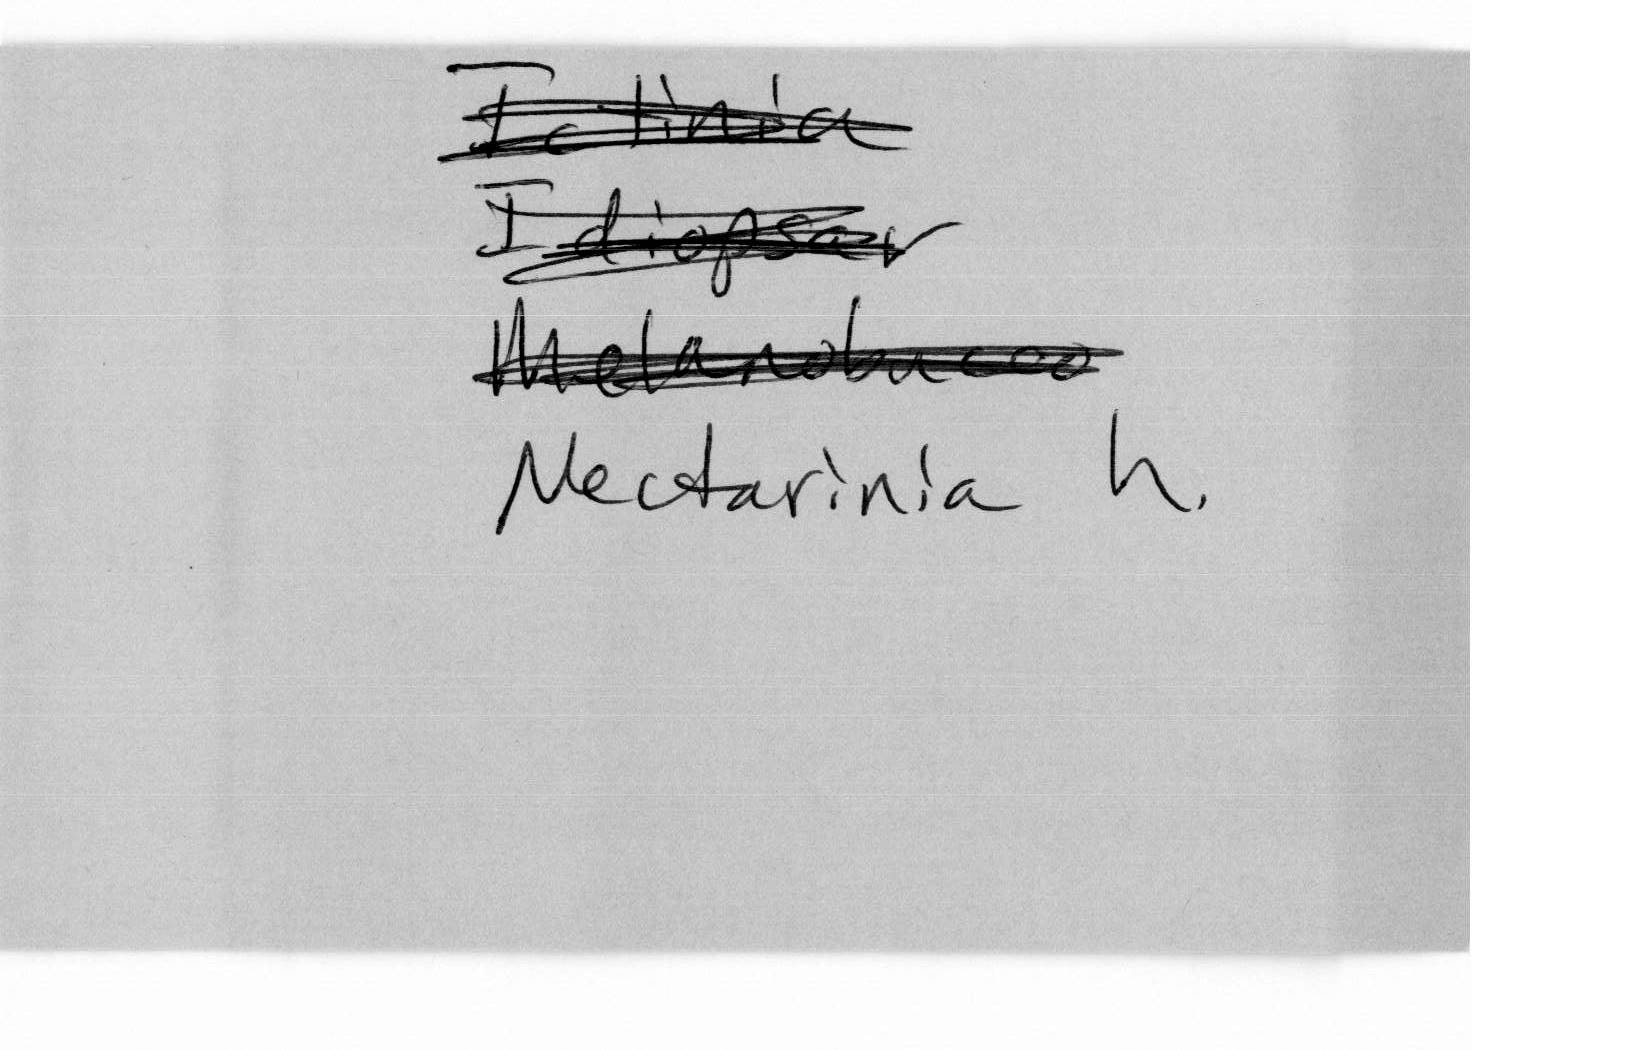 Ictinia
Idiopsar
Melanobucco
Nectarinia h.